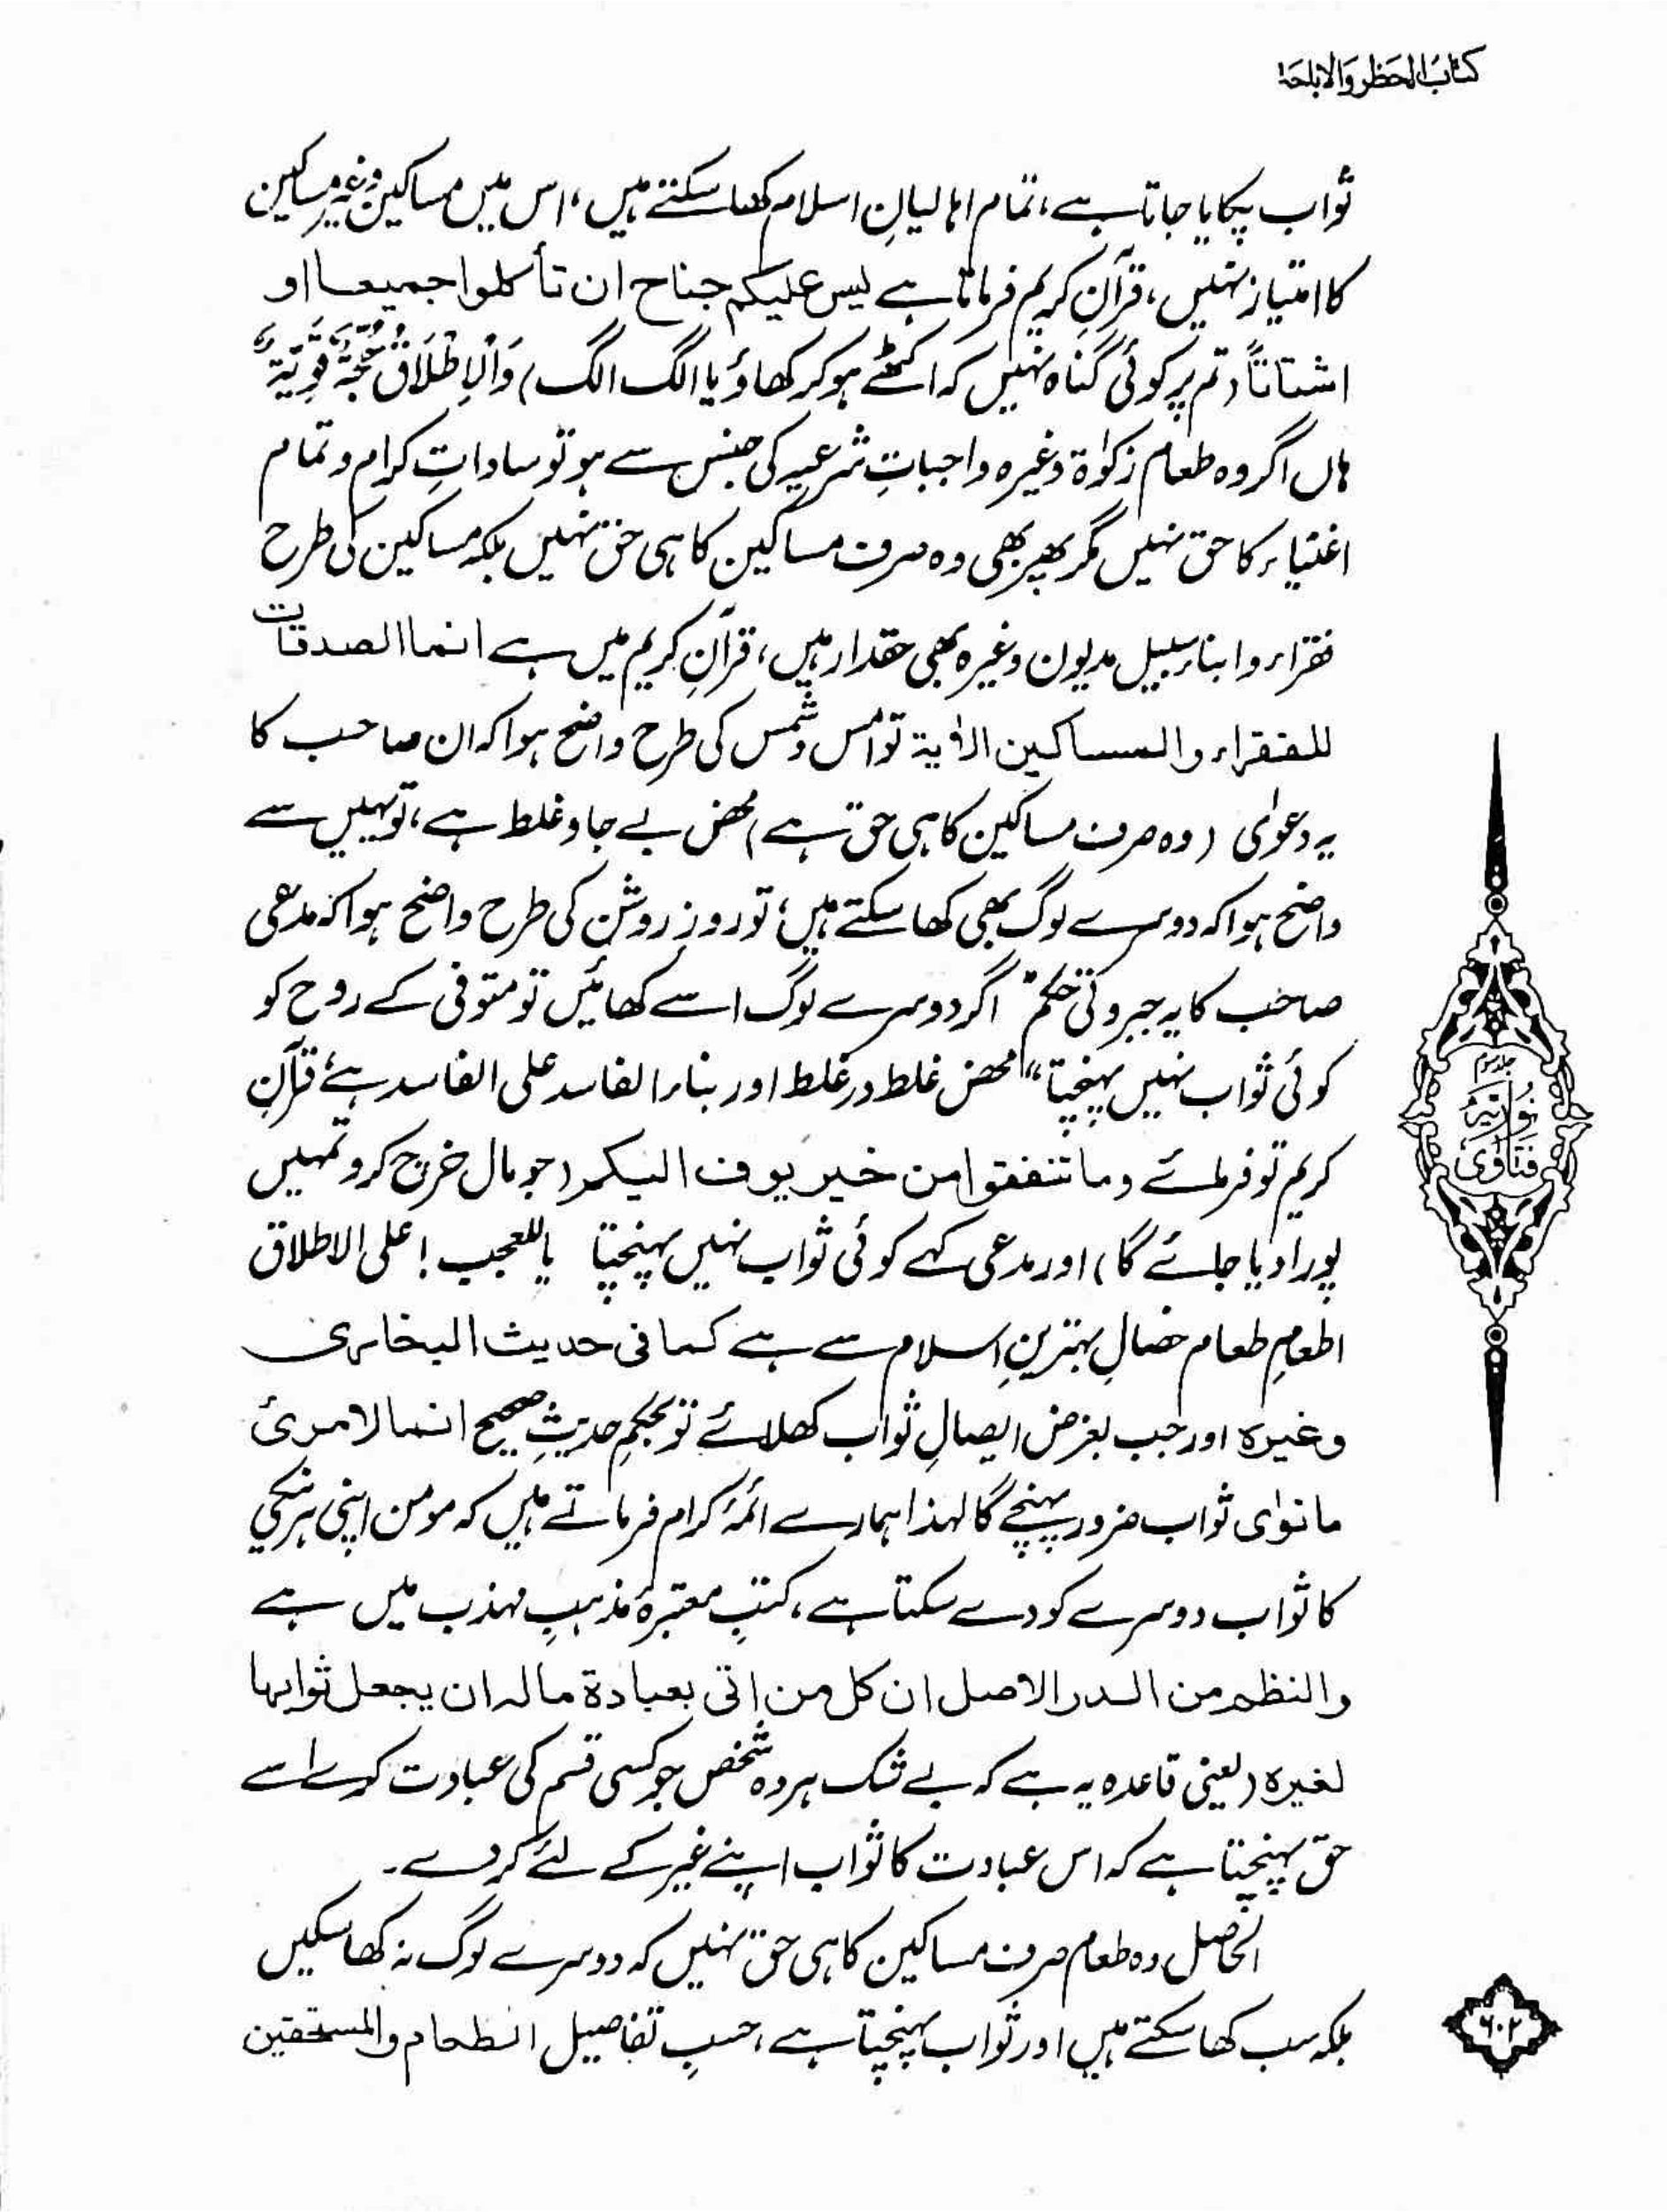 کتابُ الحَظر وَالاباحَۃ
ثواب پکایا جاتا ہے، تمام اہالیانِ اسلام کھا سکتے ہیں، اس میں مساکین وغیر مساکین
کا امتیاز نہیں، قرآنِ کریم فرماتا ہے لیس علیکم جناح ان تأکلوا جمیعا او
اشتاتاً (تم پر کوئی گناہ نہیں کہ اکٹھے ہو کر کھاؤ یا الگ الگ) وَالْاِطْلَاقُ حُجَّۃٌ قَوِیَّۃٌ
ہاں اگر وہ طعام زکوٰۃ وغیرہ واجباتِ شرعیہ کی جنس سے ہو تو ساداتِ کرام و تمام
اغنیاء کا حق نہیں مگر پھر بھی وہ صرف مساکین کا ہی حق نہیں بلکہ مساکین کی طرح
فقراء و ابناء سبیل مدیون وغیرہ بھی حقدار ہیں، قرآنِ کریم میں ہے انما الصدقات
للفقراء والمساکین الاٰیۃ تو امس و شمس کی طرح واضح ہوا کہ ان صاحب کا
یہ دعوٰی (وہ صرف مساکین کا ہی حق ہے) محض بے جا و غلط ہے، تو یہیں سے
واضح ہوا کہ دوسرے لوگ بھی کھا سکتے ہیں، تو روزِ روشن کی طرح واضح ہوا کہ مدعی
صاحب کا یہ جبروتی حکم "اگر دوسرے لوگ اسے کھائیں تو متوفی کے روح کو
کوئی ثواب نہیں پہنچتا" محض غلط در غلط اور بناء الفاسد علی الفاسد ہے، قرآنِ
کریم تو فرمائے وما تنفقوا من خیر یوف الیکم (جو مال خرچ کرو تمہیں
پورا دیا جائے گا) اور مدعی کہے کوئی ثواب نہیں پہنچتا یاللعجب! علی الاطلاق
اطعامِ طعام خصالِ بہترینِ اسلام سے ہے کما فی حدیث البخاری
وغیرہ اور جب بغرض ایصالِ ثواب کھلائے تو بحکمِ حدیثِ صحیح انما لامرئ
مانوٰی ثواب ضرور پہنچے گا لہذا ہمارے ائمۂ کرام فرماتے ہیں کہ مومن اپنی ہر نیکی
کا ثواب دوسرے کو دے سکتا ہے، کتبِ معتبرۂ مذہبِ مہذب میں ہے
والنظم من الدر الاصل ان کل من اتی بعبادۃ مالہ ان یجعل ثوابہا
لغیرہ (یعنی قاعدہ یہ ہے کہ بے شک ہر وہ شخص جو کسی قسم کی عبادت کرے اسے
حق پہنچتا ہے کہ اس عبادت کا ثواب اپنے غیر کے لئے کر دے۔
الحاصل وہ طعام صرف مساکین کا ہی حق نہیں کہ دوسرے لوگ نہ کھا سکیں
بلکہ سب کھا سکتے ہیں اور ثواب پہنچتا ہے، حسبِ تفاصیل الطعام والمستحقین
نوریہ
فتاوٰی
۶۰۲